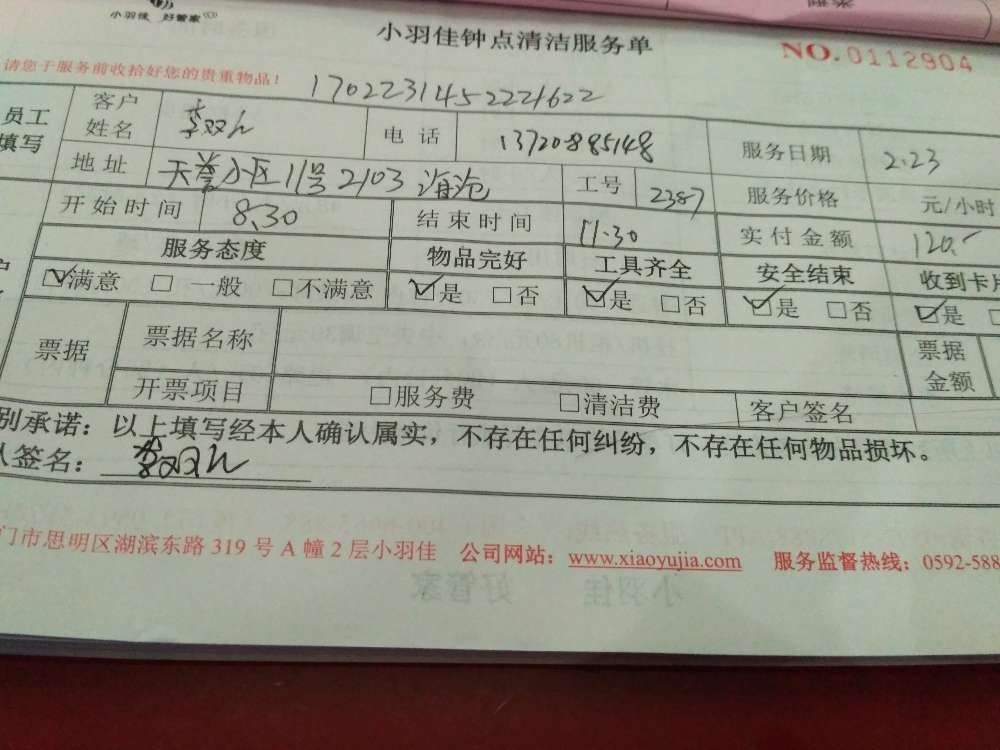 小羽佳 好管家
小羽佳钟点清洁服务单
NO.0112904
请您于服务前收拾好您的贵重物品！
1702231452221622
员工填写 客户姓名 李双 电话 13720885148 服务日期 2.23
地址 天誉小区11号2103 海沧 工号 2387 服务价格 元/小时
开始时间 8.30 结束时间 11.30 实付金额 120.-
服务态度 物品完好 工具齐全 安全结束 收到卡片
☑满意 □一般 □不满意 ☑是 □否 ☑是 □否 ☑是 □否 ☑是 □
票据 票据名称 票据金额
开票项目 □服务费 □清洁费 客户签名
别承诺：以上填写经本人确认属实，不存在任何纠纷，不存在任何物品损坏。
人签名： 李双
门市思明区湖滨东路 319 号 A 幢 2 层小羽佳 公司网站：www.xiaoyujia.com 服务监督热线：0592-588